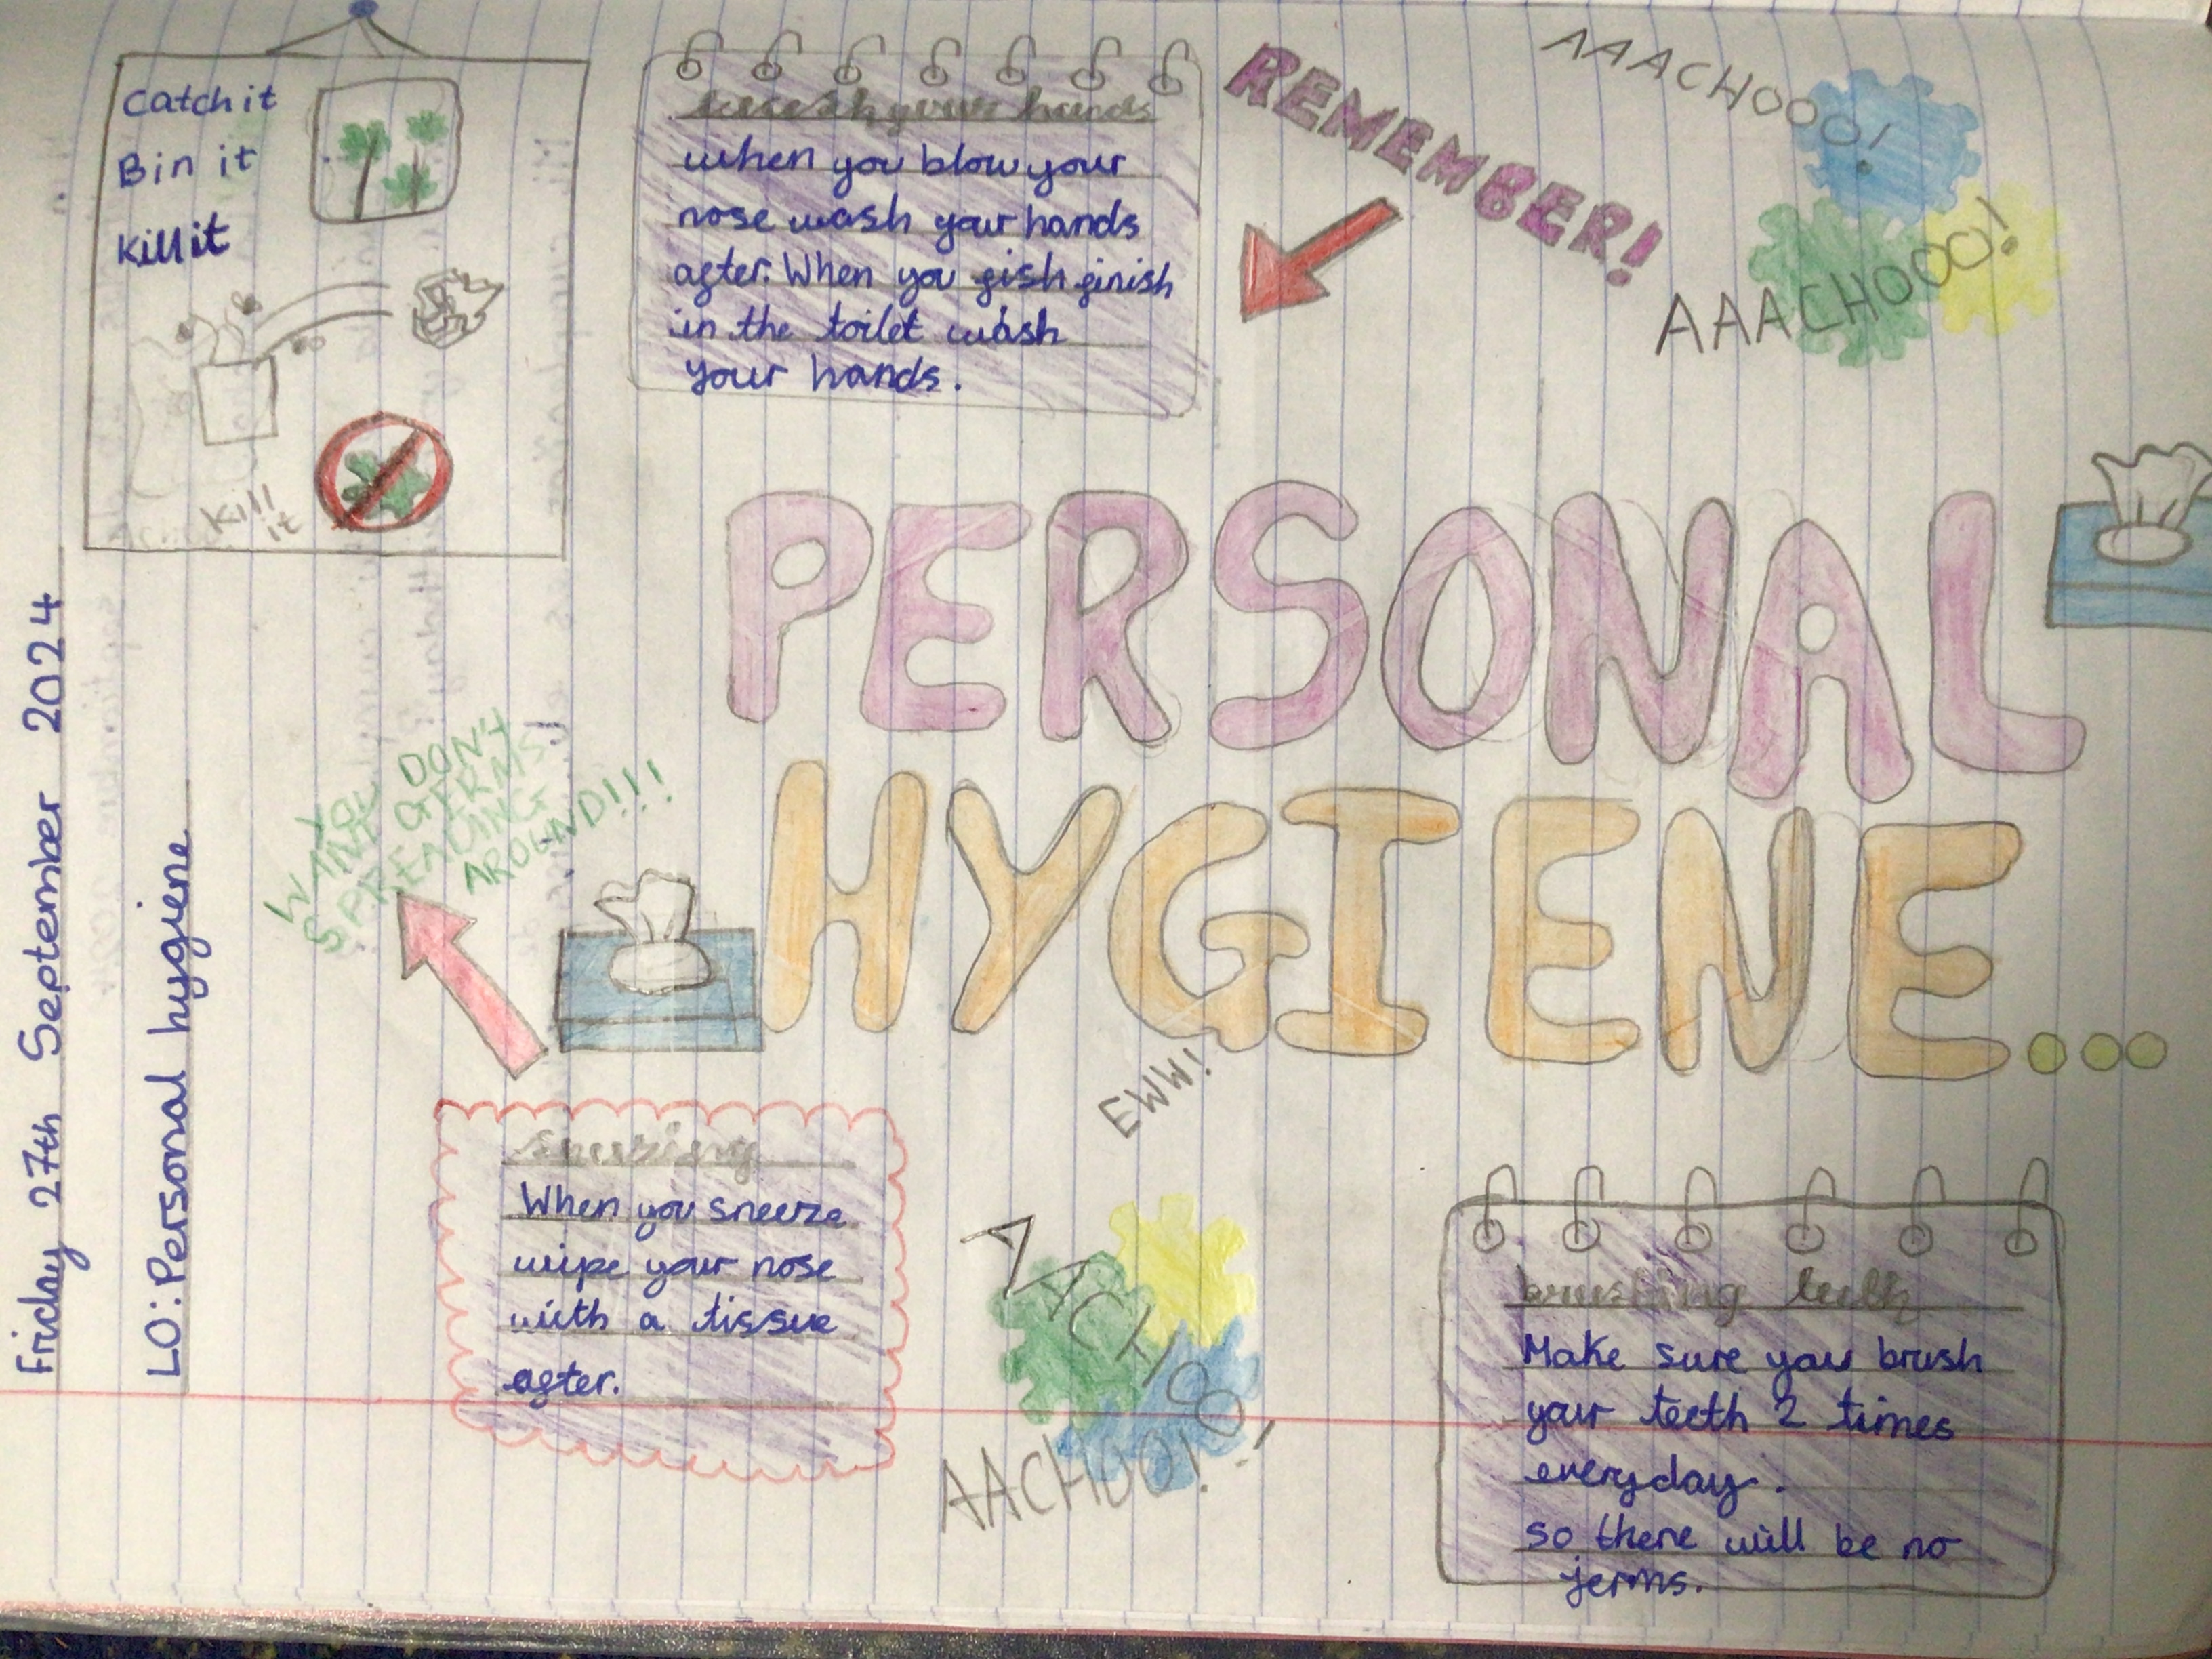 Friday 27th September 2024
LO: Personal hygiene
Catch it
Bin it
Kill it
Kill
it
wash your hands
when you blow your
nose wash your hands
after. When you fish finish
in the toilet wash
your hands.
REMEMBER!
AAACHOOO!
AAACHOOO!
PERSONAL
HYGIENE...
YOU DON'T
WANT GERMS
SPREADING
AROUND!!!
EWW!
sneezing
When you sneeze
wipe your nose
with a tissue
after.
AACHOO!
AACHOO!
brushing teeth
Make sure you brush
your teeth 2 times
everyday.
so there will be no
jerms.